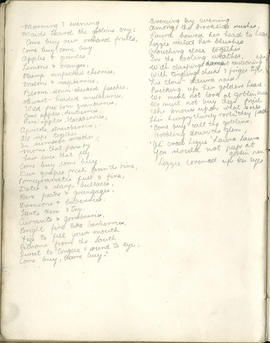 Morning & evening
Maids heard the goblins cry:
Come buy our orchard fruits,
Come buy, come buy:
Apples & quinces
Lemons & oranges,
Plump unpecked cherries,
Melons & raspberries,
Bloom-down-cheeked peaches,
Swart-headed mulberries,
Wild free born cranberries,
Crab apples, dewberries,
Pine-apples, blackberries,
Apricots, strawberries;
All ripe together
In summer weather
Morns that pass by
Fair eves that fly
Come buy, come buy
Our grapes fresh from the vine,
Pomegranates full & fine,
Dates & sharp bullaces,
Rare pears & greengages,
Damsons & bilberries,
Taste them & try,
Currants & gooseberries,
Bright fire like barberries,
Figs to fill your mouth
Citrons from the South
Sweet to tongue & sound to eye,
Come buy, come buy.
Evening by evening
Among the brookside rushes,
Laura bowed her head to hear
Lizzie veiled her blushes
Crouching close together
In the cooling weather,
With clasping arms & cautioning
With tingling cheeks & finger tips.
"Lie close" Laura said
Pricking up her golden head
We must not look at goblin men
We must not buy their fruits
Who knows upon what soil
Their hungry thirsty roots
"Come buy" call the goblins
Hobbling down the glen
"Oh" cried Lizzie "Laura Laura
You should not peep at
goblin men"
Lizzie covered up her eyes